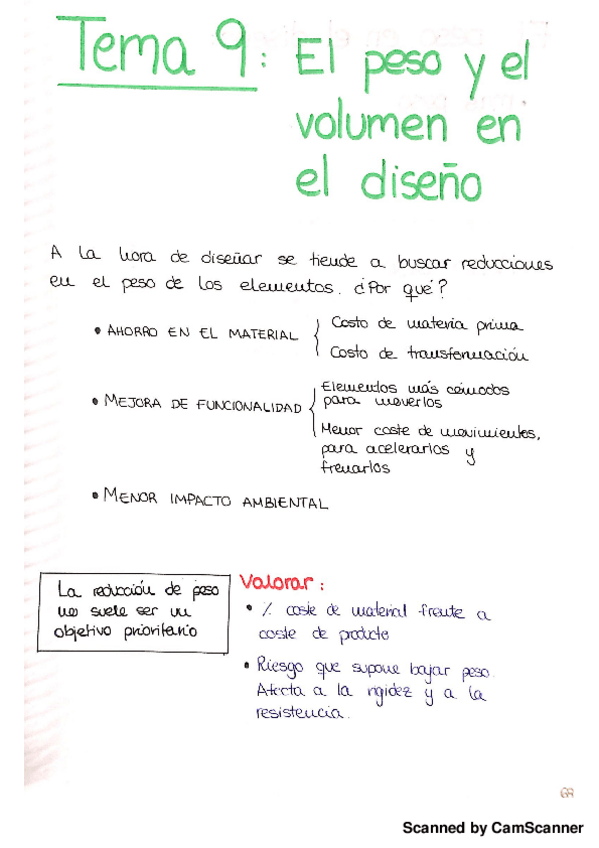 Tema 9: El peso y el
volumen en
el diseño
A la hora de diseñar se tiende a buscar reducciones
en el peso de los elementos. ¿Por qué?
• AHORRO EN EL MATERIAL
Costo de materia prima
Costo de transformación
• MEJORA DE FUNCIONALIDAD
Elementos más cómodos
para moverlos
Menor coste de movimientos,
para acelerarlos y
frenarlos
• MENOR IMPACTO AMBIENTAL
La reducción de peso
no suele ser un
objetivo prioritario
Valorar:
• % coste de material frente a
coste de producto
• Riesgo que supone bajar peso.
Afecta a la rigidez y a la
resistencia.
Scanned by CamScanner